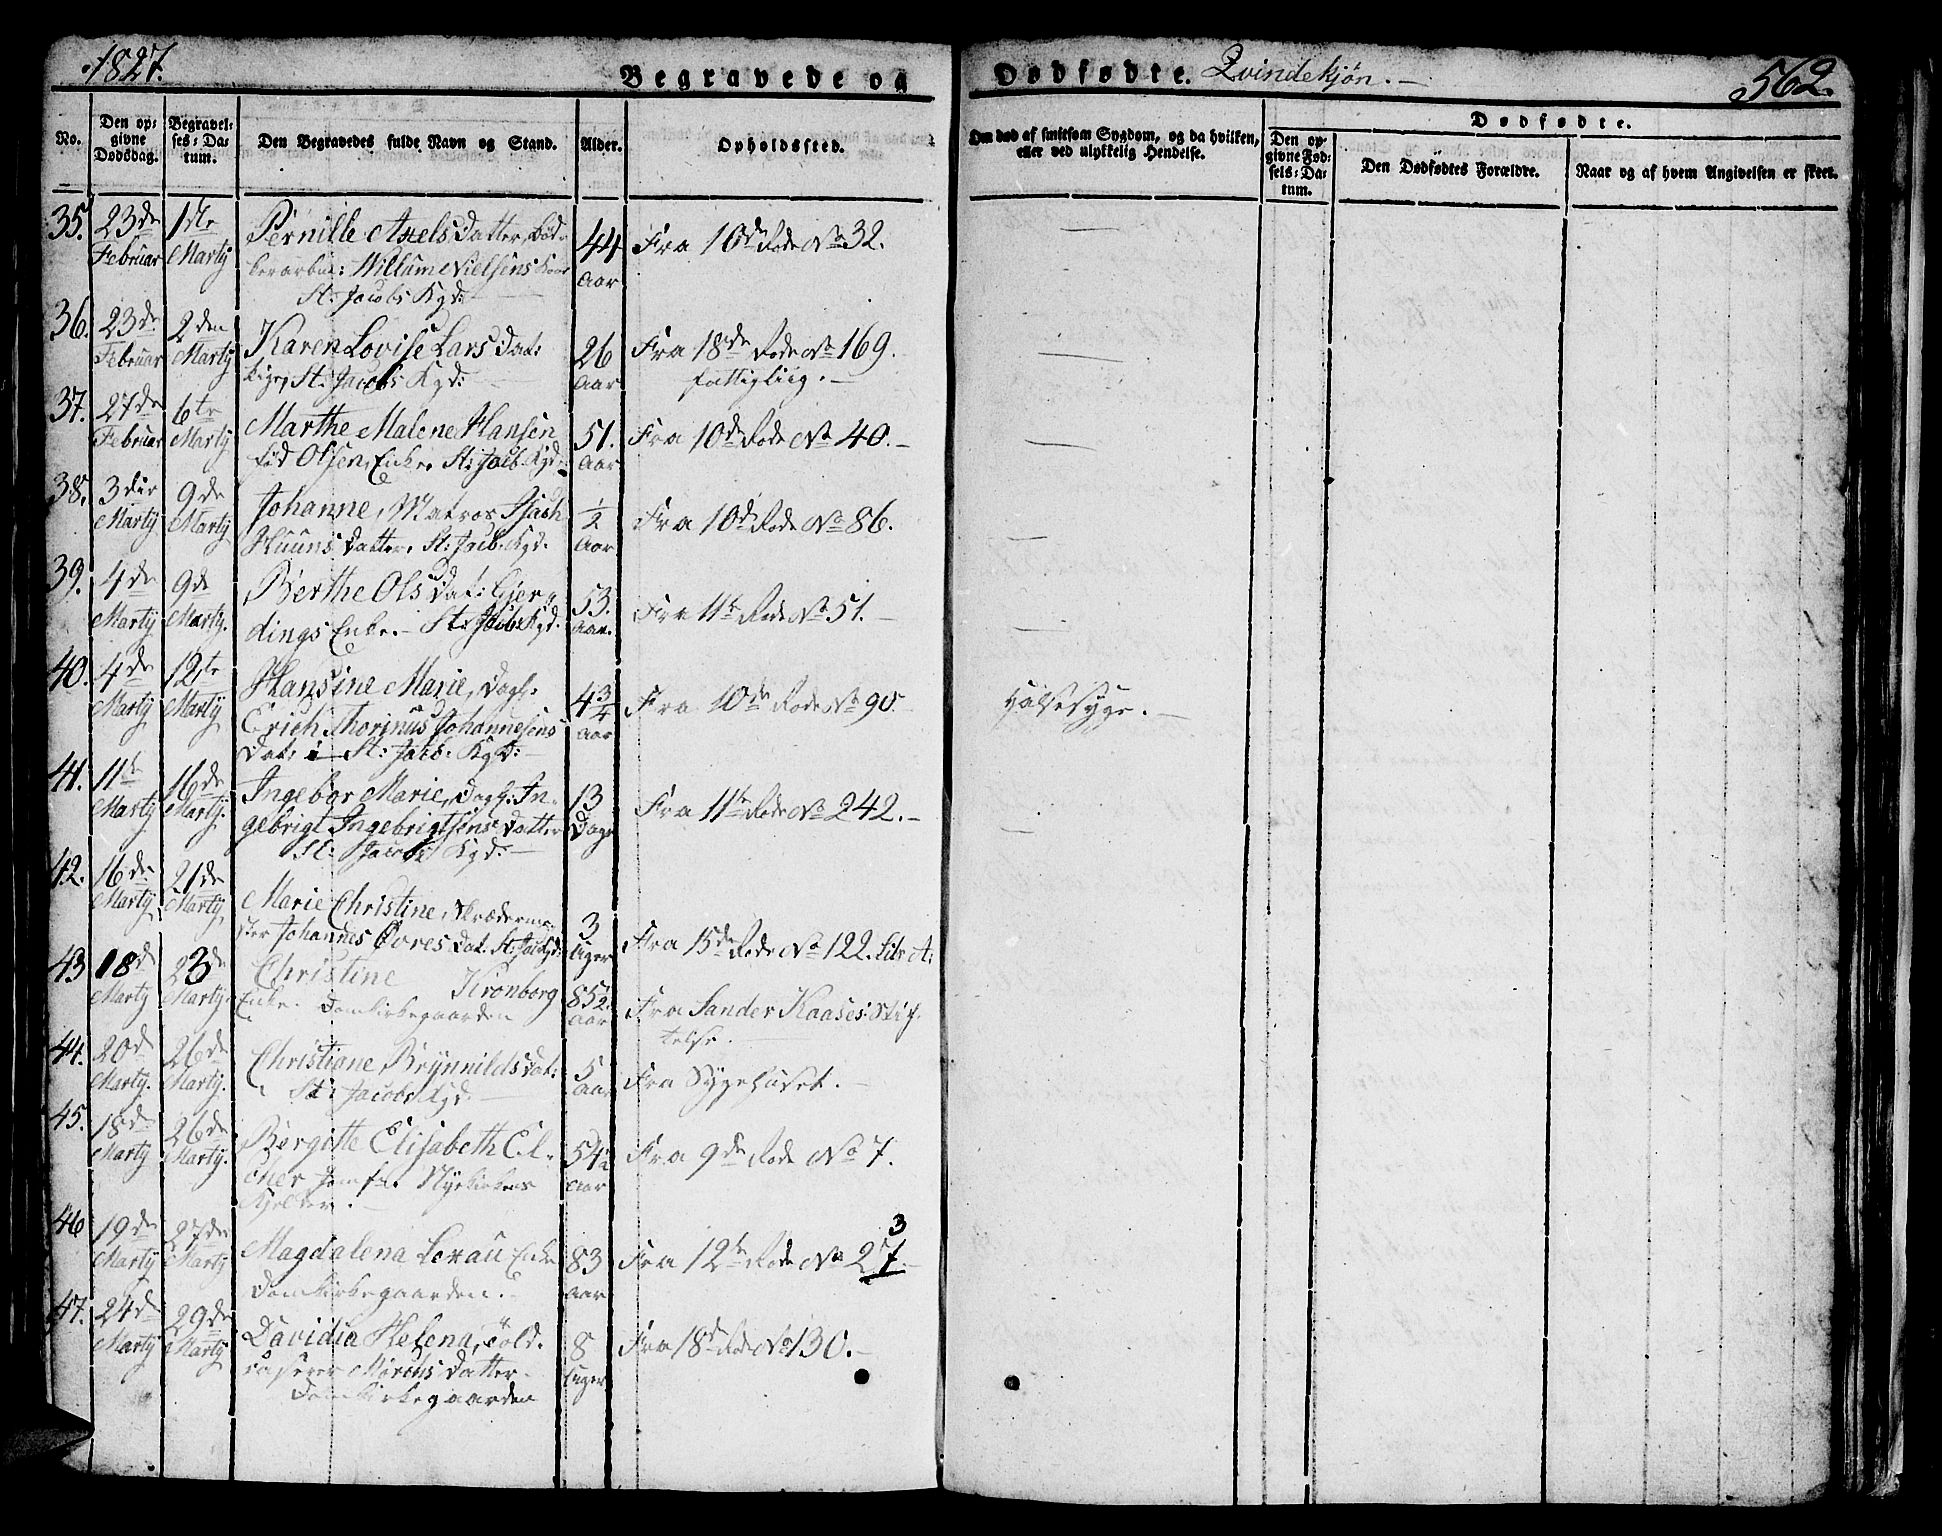 1827.
Begravede og Dødfødte. Qvindekjøn.—
562.
No.
Den opgivne Dødsdag.
Begravelses-Datum.
Den Begravedes fulde Navn og Stand.
Alder.
Opholdssted.
Om død af smitsom Sygdom, og da hvilken, eller ved ulykkelig Hendelse.
Dødfødte.
Den opgivne Fødsels-Datum.
Den Dødfødtes Forældre.
Naar og af hvem Angivelsen er skeet.
35. 23de Februar 1ste Martij Pernille Axels Datter, Bød-
kerarbei: Willum Nielsens Kone
St: Jacobs Kgd:
44 Aar Fra 10de Rode No 32.
36. 23de Februar 2den Martij Karen Lovise Lars Dat:
Pige, St: Jacobs Kgd:
26 Aar Fra 18de Rode No 169.
fattigliig.—
37. 27de Februar 6te Martij Marthe Malene Hansen
fød Olsen, Enke, St: Jacb. Kgd.
51. Aar Fra 10de Rode No 40.—
38. 3die Martij 9de Martij Johanne, Matros
Huuns Datter, St: Jacb. Kgd.
1/2 Aar Fra 10de Rode No 86.
39. 4de Martij 9de Martij. Berthe Ols Dat: Gjer-
dings Enke.— St: Jacb: Kgd.
53. Aar. Fra 11te Rode No 51.—
40. 4de Martij 12te Martij Hansine Marie, Dagl:
Erich Thorinus Johannesens
Dat: St: Jacb. Kgd:
4 3/4 Aar Fra 10de Rode No 90 Halsesyge.—
41. 11te Martij 16de Martij. Ingebor Marie, Dagl: In-
gebrigt Ingebrigtsens Datter
St: Jacobs Kgd:—
13 Dage Fra 11te Rode No 242.—
42. 16de Martij 21de Martij Marie Christine, Skræderme-
ster Johannes Øvres Dat. St: Jac Kgd:
3 Uger Fra 15de Rode No 122. Litr A:
43 18de Martij 23de Martij. Christine Kronborg
Enke. Domkirkegaarden
85 1/2 Aar Fra Sander Kaases: Stif-
telse.
44. 20de Martij. 26de Martij. Christiane Brynnilds Dat:
St: Jacobs Kgd.
5 Aar Fra Sygehuset.—
45. 18de Martij 26de Martij. Bergitte Elisabeth El-
Jomfr. Nyekirkens
Kjelder.—
54 1/2 Aar Fra 9de Rode No 7.
46 19de Martij 27de Martij Magdalena Enke
Domkirkegaarden.—
83 Aar Fra 12te Rode No 27 3
47. 24de Martij 29de Martij Davidia Helena, Told-
Datter.
Domkirkegaarden
8 Uger Fra 18de Rode No 130.—